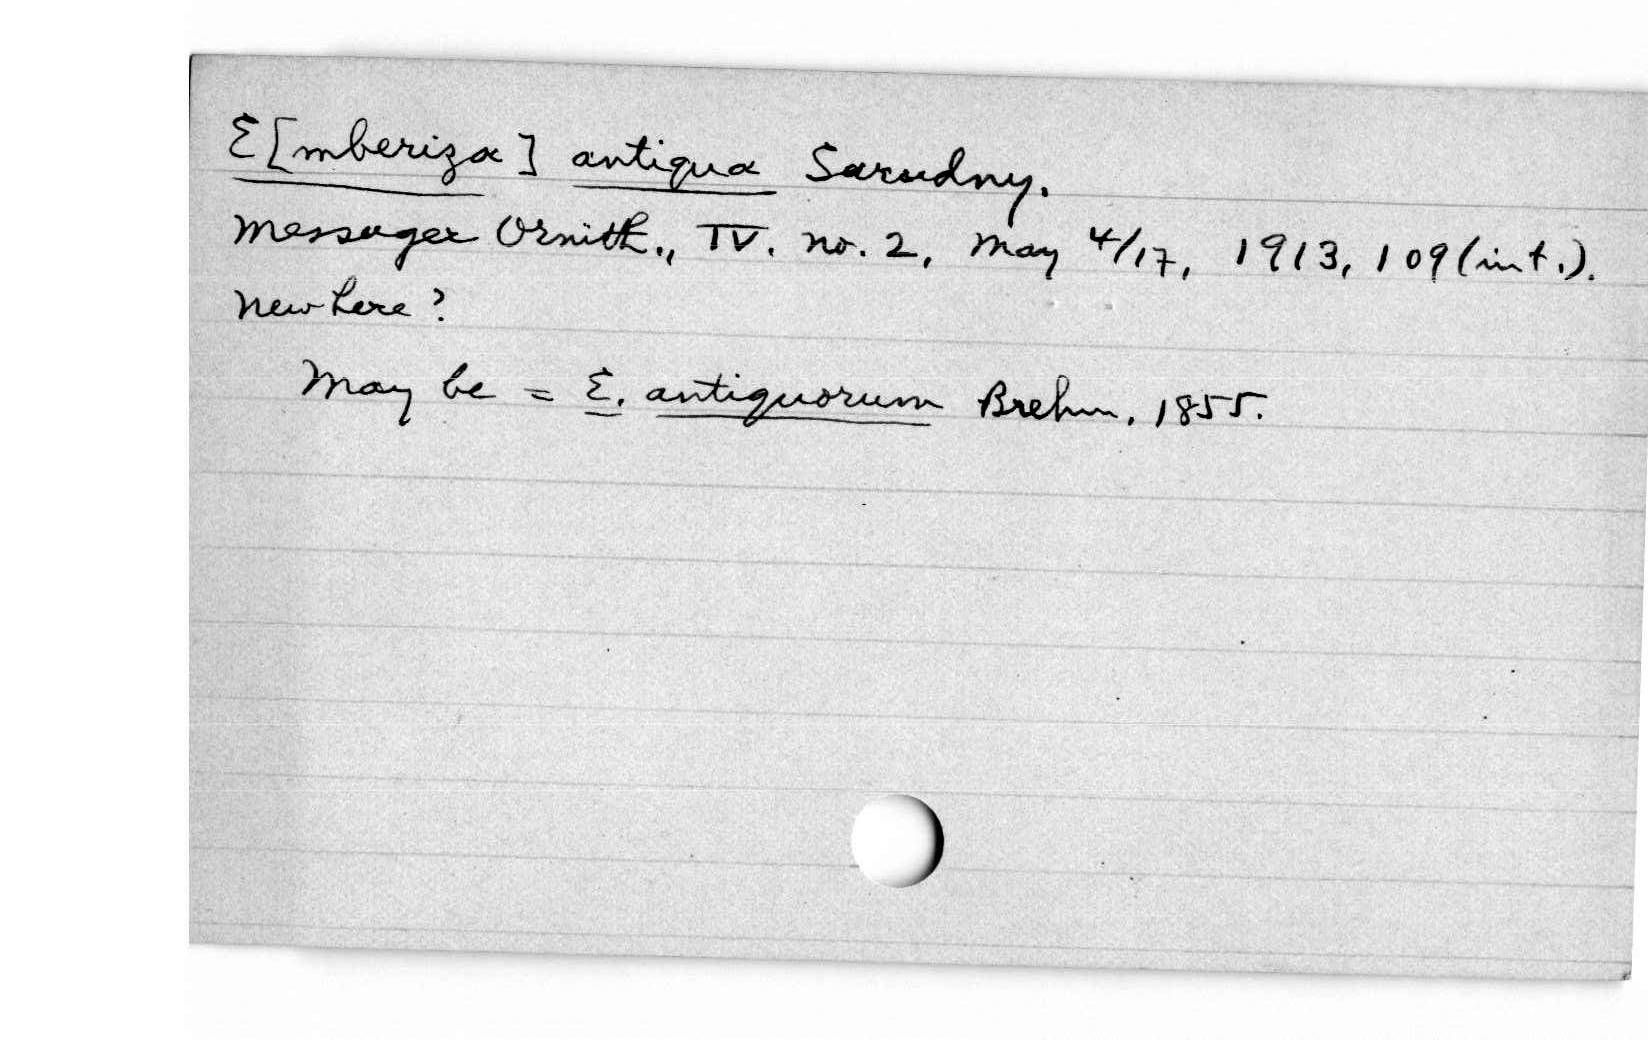 E[mberiza] antiqua Sarudny.
Messager Ornith., IV. no. 2, May 4/17, 1913, 109 (int.).
New here?
May be = E. antiquorum Brehm, 1855.